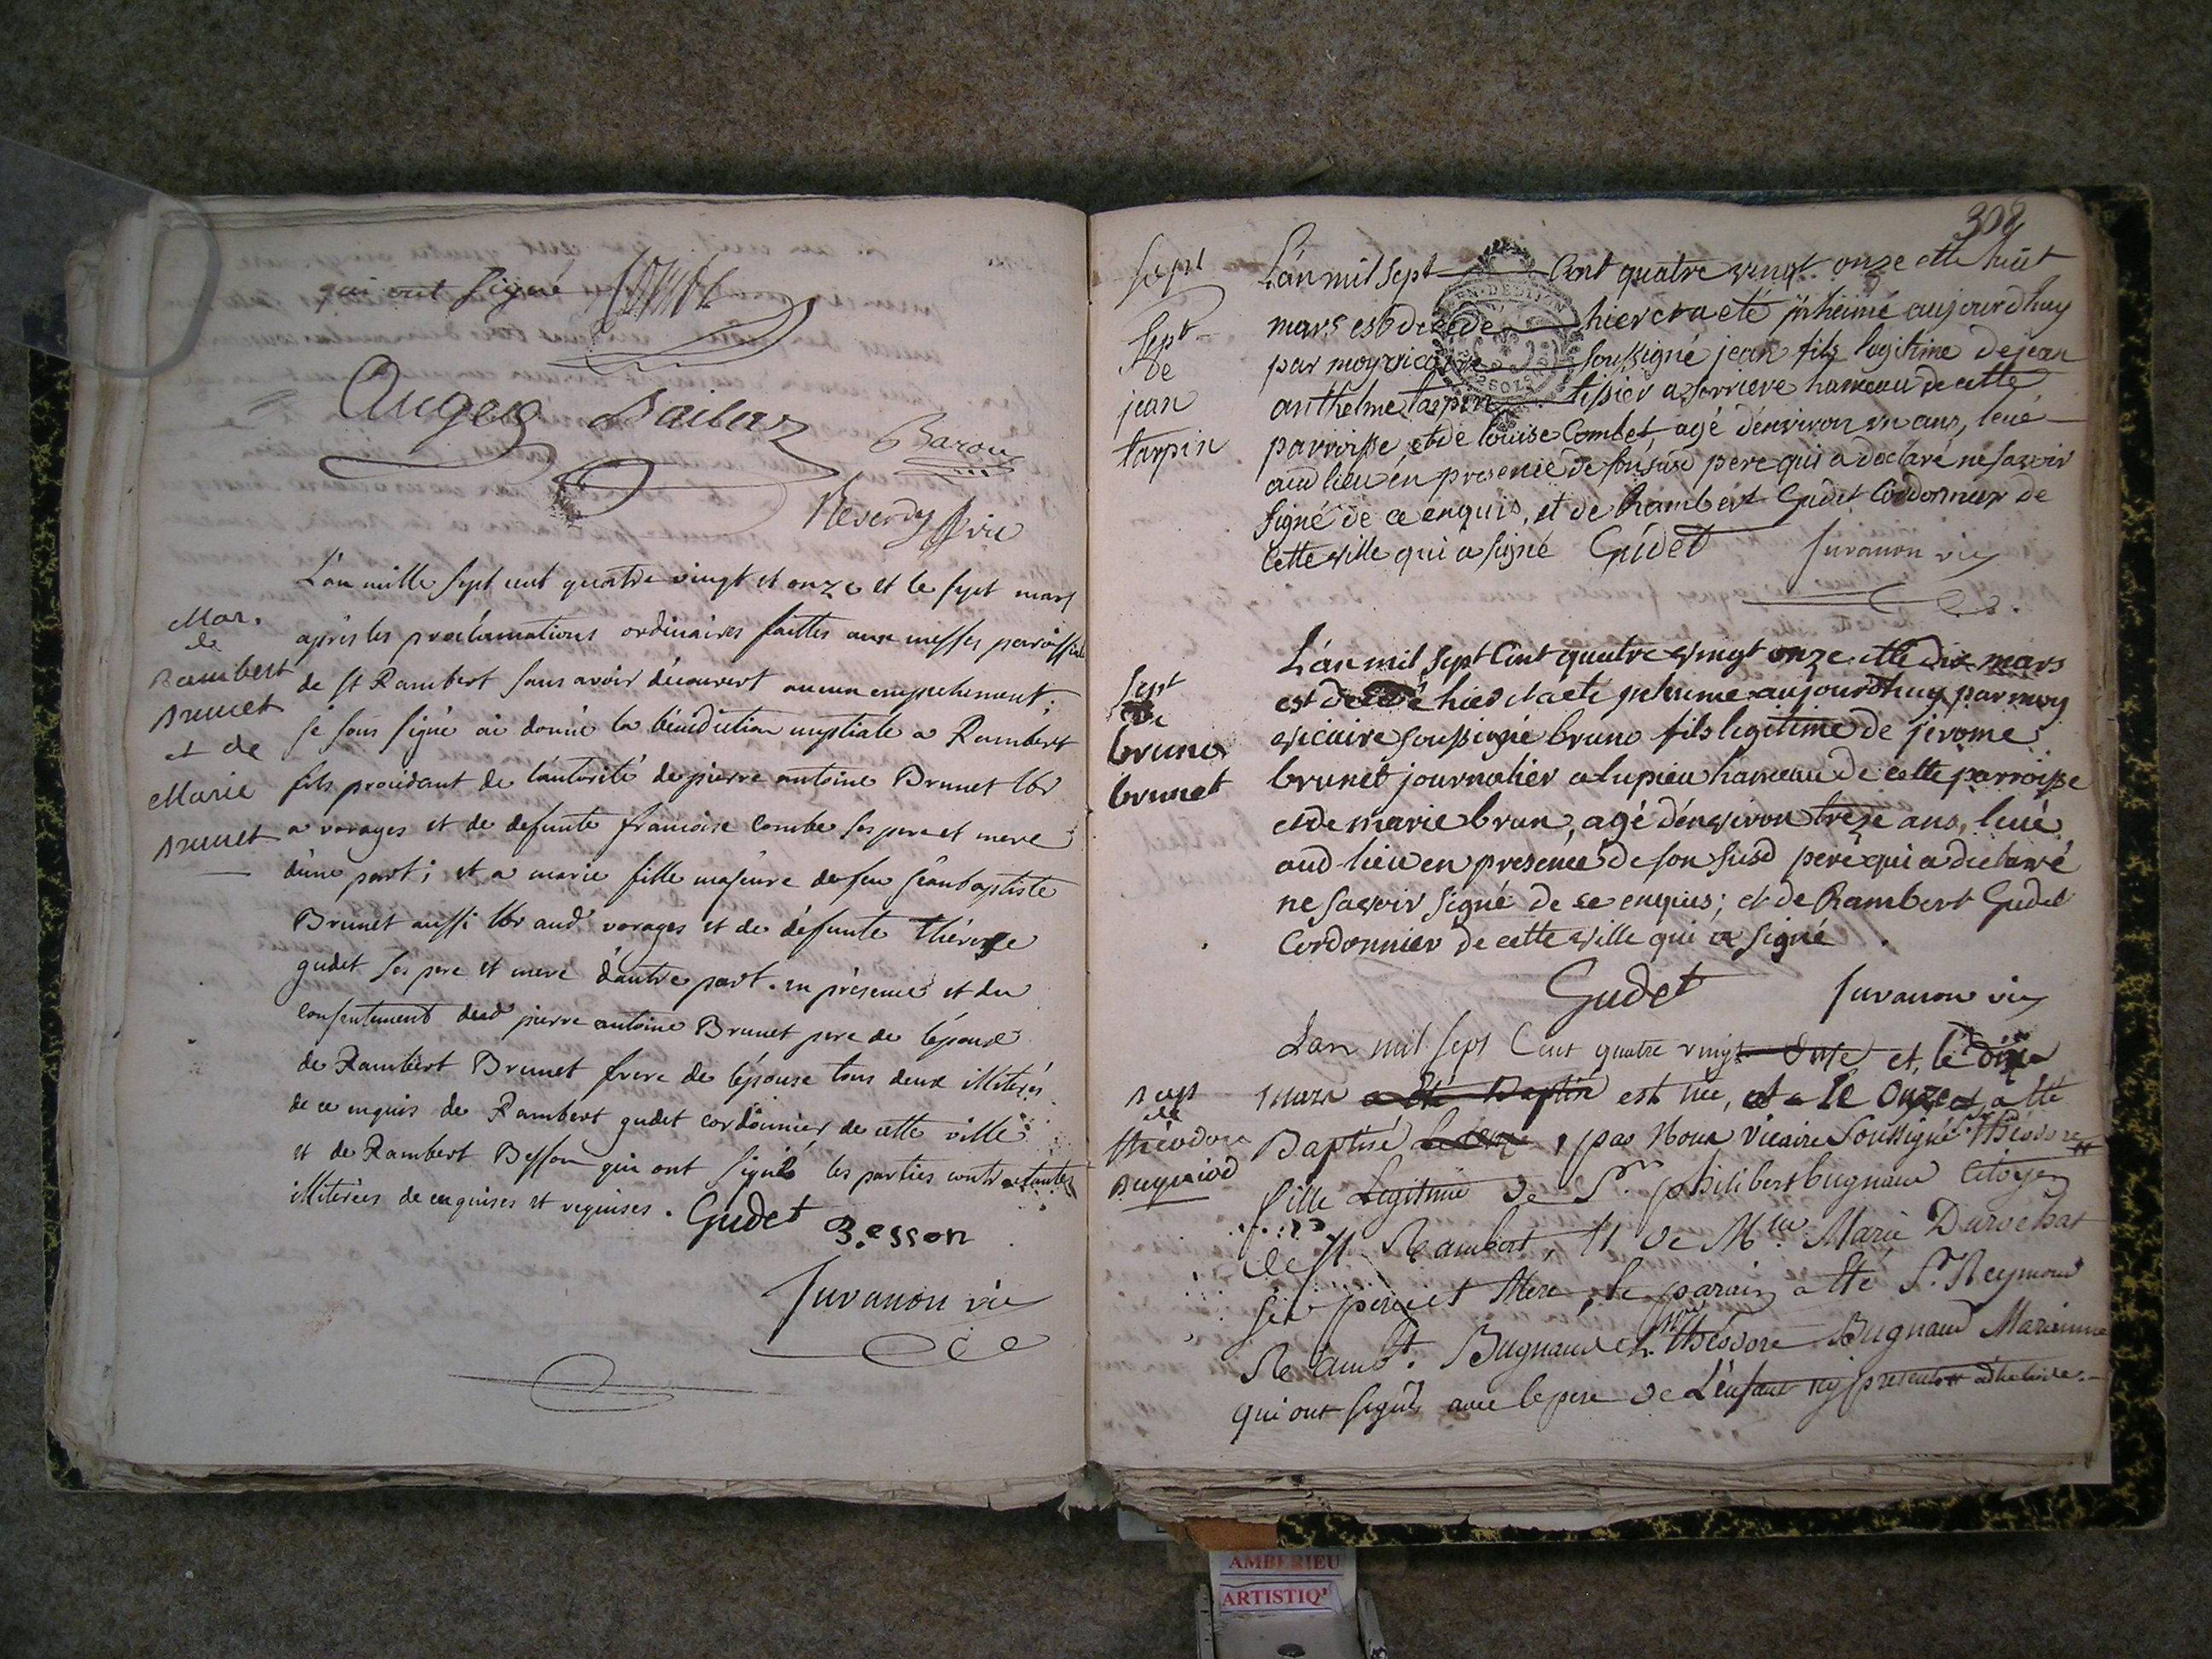 qui ont signé
Auger Bailar Baron
Reverdy vic
Mar.
de
Rambert
Brunet
et de
Marie
Brunet
L'an mille sept cent quatre vingt et onze et le sept mars
après les proclamations ordinaires faittes aux messes paroissiale
de st Rambert sans avoir découvert aucun empechement;
je sous signé ai donné la bénédiction nuptiale a Rambert
fils procédant de l'autorité de pierre antoine Brunet lbr
a vorages et de defunte francoise combe ses pere et mere
d'une part; et a marie fille majeure de feu jean baptiste
Brunet aussi lbr aud vorages et de defunte thérese
gudet ses pere et mere d'autre part. en présence et du
consentement dud pierre antoine Brunet pere de l'époux
de Rambert Brunet frere de l'épouse tous deux illiterés
de ce enquis de Rambert gudet cordonnier de cette ville
et de Rambert Besson qui ont signés les parties contractantes
illiterées de ce enquises et requises. Gudet Besson
Juvanon vic
308
EN. DE DIJON
sept
sept
de
jean
tarpin
L'an mil sept Cent quatre vingt onze et le huit
mars est decede hier et a eté inhumé aujourdhuy
par moy vicaire soussigné jean fils legitime de jean
anthelme tarpin tissier a serriere hameau de cette
parroisse et de louise Combet, agé d'environ un ans, levé
aud lieu en presence de son susd pere qui a declaré ne savoir
signé de ce enquis, et de Rambert Gudet Cordonnier de
cette ville qui a signé Gudet Juvanon vic
sept
de
bruno
brunet
L'an mil sept Cent quatre vingt onze et le dix mars
est decedé hier et a eté inhumé aujourdhuy par moy
vicaire soussigné bruno fils legitime de jerome
brunet journalier a lupieu hameau de cette parroisse
et de marie brun, agé d'environ treze ans, levé
aud lieu en presence de son susd pere qui a declaré
ne savoir signé de ce enquis; et de Rambert Gudet
Cordonnier de cette ville qui a signé
Gudet Juvanon vic
Bap
de
théodore
Bugniod
Lan mil sept Cent quatre vingt onze et, le dix
mars a été Baptisé est née, et le onze a été
Baptisé, par Nous Vicaire Soussigné Théodore
fille Legitime de Sr. philibert bugnaud Citoyen
de St Rambert, et de Mlle. Marie Durochat
ses pere et Mere, le parain a été Sr. Reymond
Rambt. Bugnaud et Théodore Bugnaud Marainne
qui ont signés avec le pere de L'enfant
AMBERIEU
ARTISTIQ'